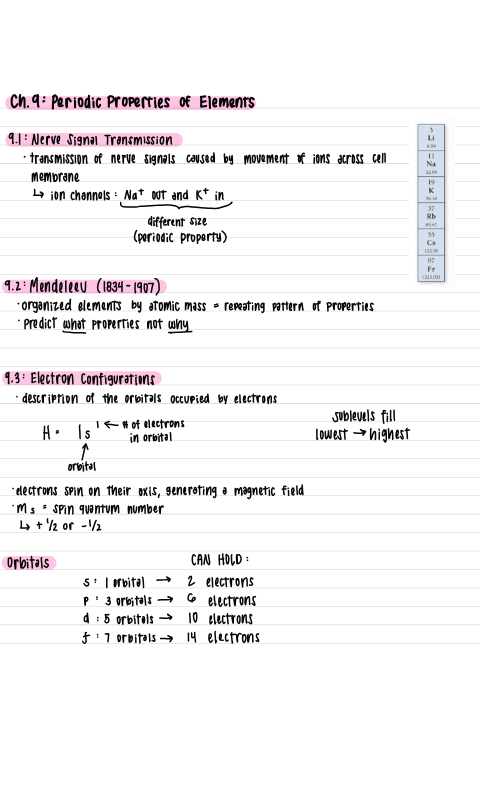 Ch.9: Periodic Properties of Elements
9.1: Nerve Signal Transmission
· transmission of nerve signals caused by movement of ions across cell
membrane
↳ ion channels: Na⁺ out and K⁺ in
different size
(periodic property)
3
Li
6.94
11
Na
22.99
19
K
39.10
37
Rb
85.47
55
Cs
132.91
87
Fr
(223.02)
9.2: Mendeleev (1834-1907)
· organized elements by atomic mass = repeating pattern of properties
· predict what properties not why
9.3: Electron Configurations
· description of the orbitals occupied by electrons
H = 1s¹ ← # of electrons
in orbital
orbital
sublevels fill
lowest → highest
· electrons spin on their axis, generating a magnetic field
· ms = spin quantum number
↳ + 1/2 or -1/2
Orbitals CAN HOLD:
s : 1 orbital → 2 electrons
p : 3 orbitals → 6 electrons
d : 5 orbitals → 10 electrons
f : 7 orbitals → 14 electrons